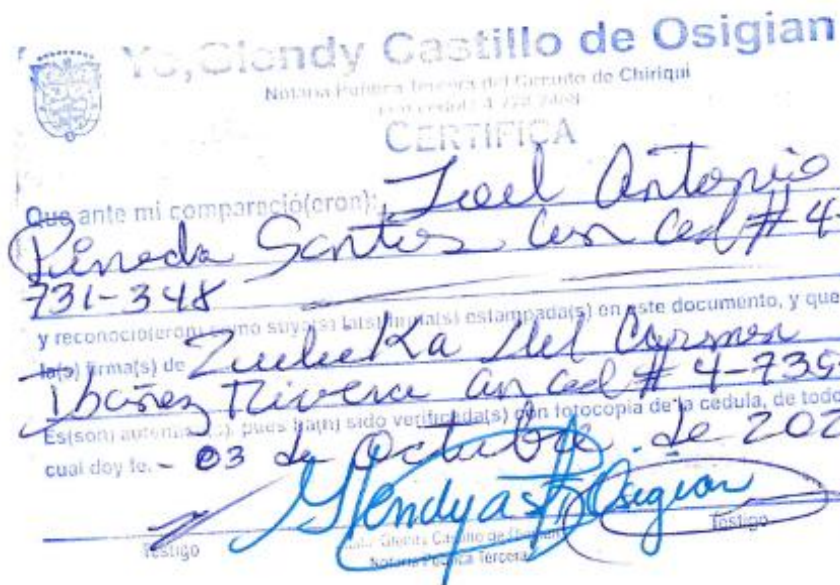 Yo, Glendy Castillo de Osigian
Notaria Pública Tercera del Circuito de Chiriquí
CERTIFICA
Que ante mi compareció(eron): Joel Antonio
Pineda Santos con ced # 4-
731-348
y reconoció(eron) como suya(s) la(s) firma(s) estampada(s) en este documento, y que
la(s) firma(s) de Zuleika Del Carmen
Ibañez Rivera con ced # 4-735-
Es(son) autentica(s), pues ha(n) sido verificada(s) con fotocopia de la cedula, de todo
cual doy fe. - 03 de Octubre de 202
Glendy Osigian
Testigo Testigo
Glendy Castillo de Osigian
Notaria Pública Tercera